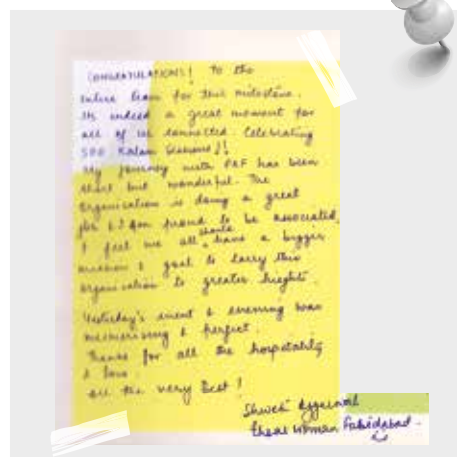 CONGRATULATIONS! To the
entire team for this milestone.
Its indeed a great moment for
all of us connected. Celebrating
500 Kalam Sessions!!
My journey with PKF has been
short but wonderful. The
Organisation is doing a great
job & I am proud to be associated.
I feel we all should have a bigger
mission & goal to carry this
organisation to greater heights.
Yesterday's event & evening was
mesmerising & perfect.
Thanks for all the hospitality
& love.
All the very Best!
Shweta Aggarwal
Ehsaas Woman Faridabad